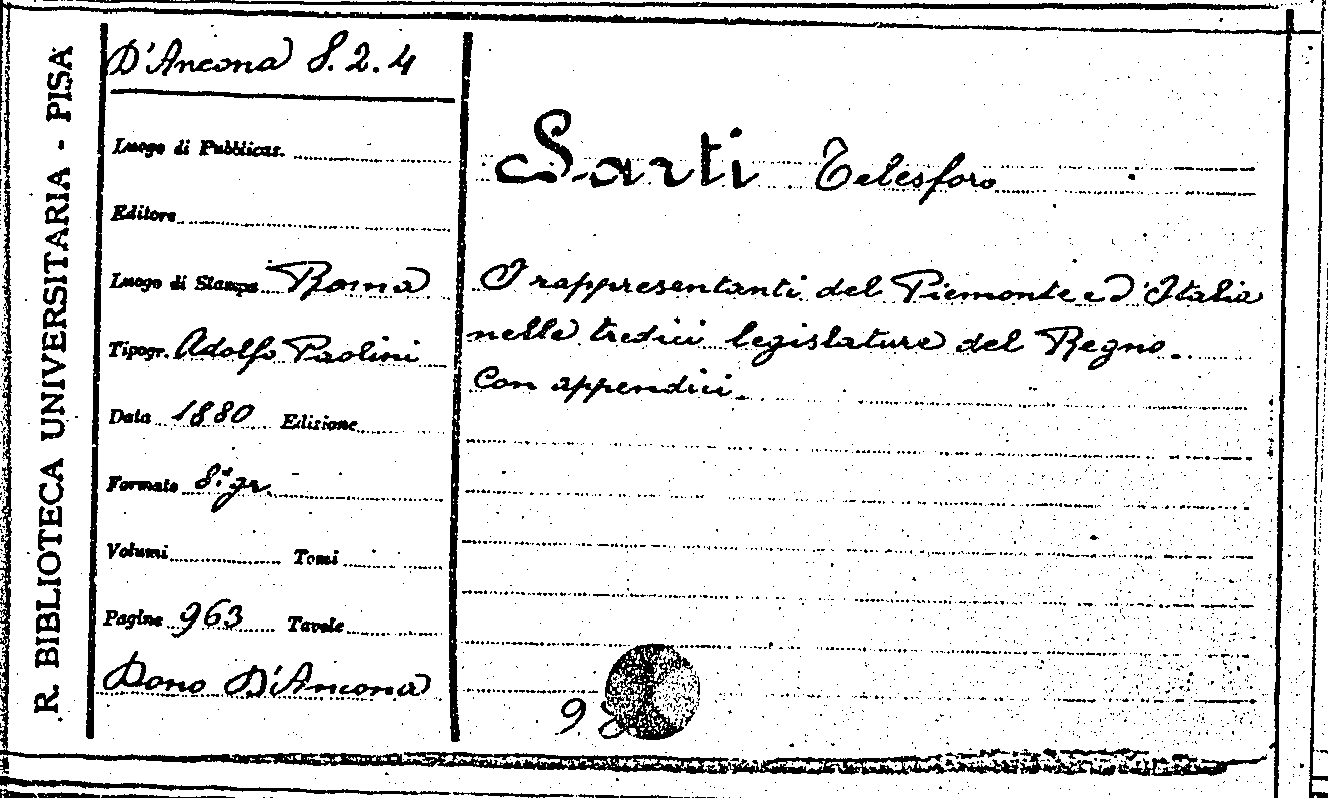 R. BIBLIOTECA UNIVERSITARIA - PISA
D'Ancona S. 2. 4
Luogo di Pubblicaz.
Editore
Luogo di Stampa Roma
Tipogr. Adolfo Paolini
Data 1880 Edizione
Formato 8.° gr.
Volumi Tomi
Pagine 963 Tavole
Dono D'Ancona
Sarti Telesforo
I rappresentanti del Piemonte e d'Italia
nelle tredici legislature del Regno.
Con appendici.